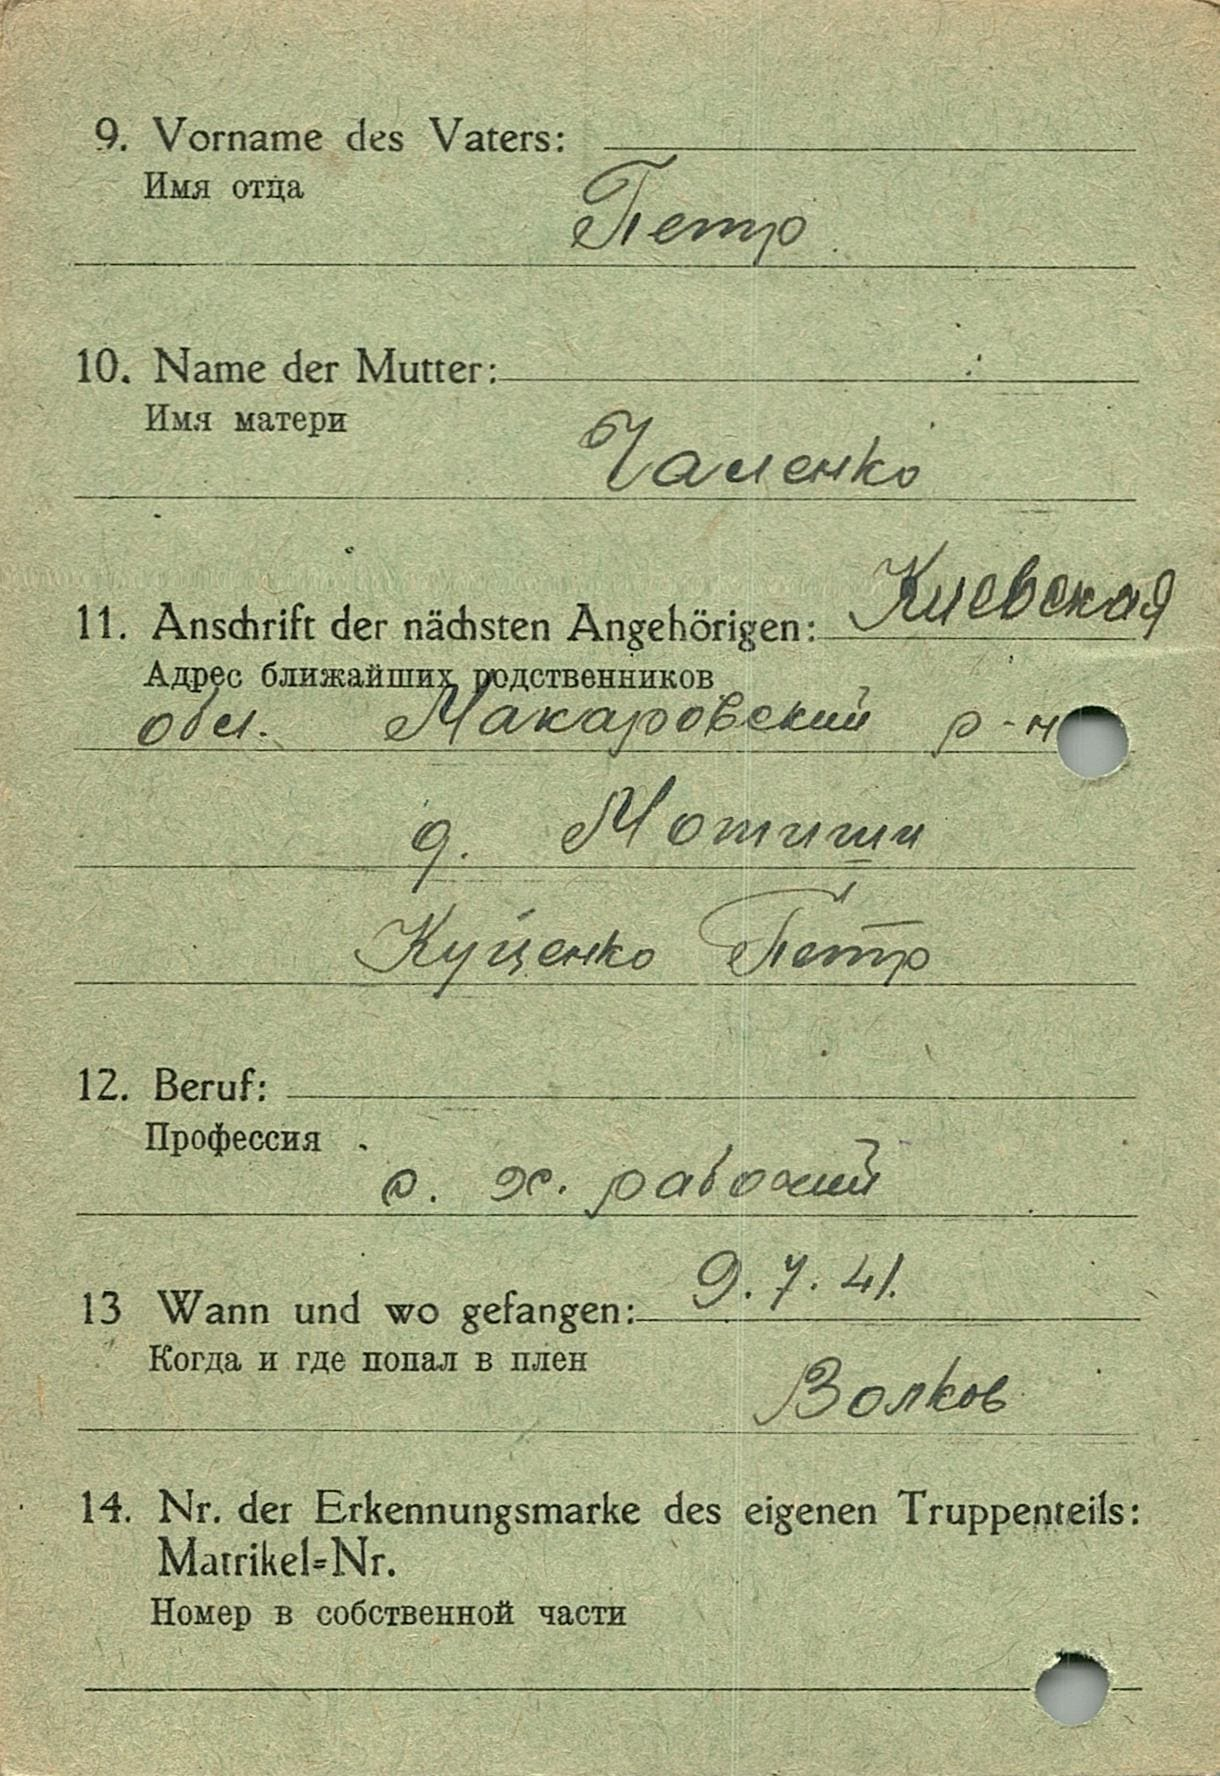 9. Vorname des Vaters:
Имя отца
Петр
10. Name der Mutter:
Имя матери
Чаленко
11. Anschrift der nächsten Angehörigen: Киевская
Адрес ближайших родственников
обл. Макаровский р-н
д. Мотиши
Куценко Петр
12. Beruf:
Профессия
с. х. рабочий
13 Wann und wo gefangen: 9.7.41.
Когда и где попал в плен
Волков
14. Nr. der Erkennungsmarke des eigenen Truppenteils:
Matrikel=Nr.
Номер в собственной части